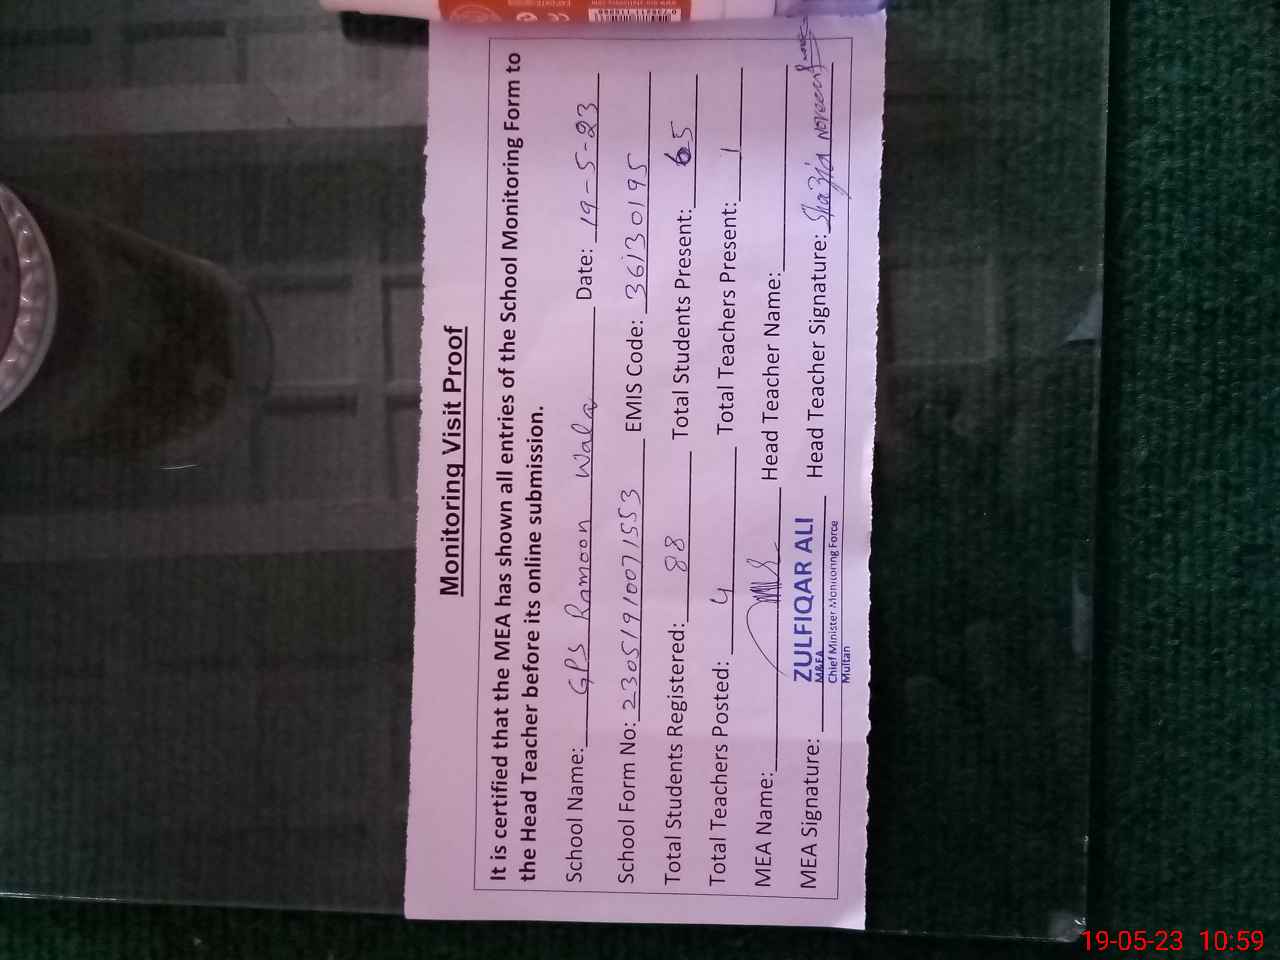 Monitoring Visit Proof
It is certified that the MEA has shown all entries of the School Monitoring Form to
the Head Teacher before its online submission.
School Name: GPS Ramoon Wala Date: 19-5-23
School Form No: 23051910071553 EMIS Code: 36130195
Total Students Registered: 88 Total Students Present: 65
Total Teachers Posted: 4 Total Teachers Present: 1
MEA Name: Head Teacher Name:
MEA Signature: Head Teacher Signature: Shazia Noreen
ZULFIQAR ALI
M&EA
Chief Minister Monitoring Force
Multan
19-05-23 10:59